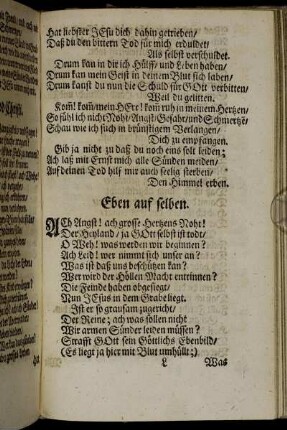 Hat liebster JEsu dich dahin getrieben/
Daß du den bittern Tod für mich erduldet/
Als selbst verschuldet.
Drum kan in dir ich Hülff/ und Leben haben/
Drum kan mein Geist in deinem Blut sich laben/
Drum kanst du nun die Schuld für GOtt verbitten/
Weil du gelitten.
Kom̃! kom̃/ mein HErr! kom̃ ruh in meinem Hertzen/
So fühl ich nicht Noht/ Angst/ Gefahr/ und Schmertzē/
Schau wie ich such in brünstigem Verlangen/
Dich zu empfangen.
Gib ja nicht zu daß du noch eins solt leiden;
Ach laß mit Ernst mich alle Sünden meiden/
Auf deinen Tod hilf mir auch seelig sterben/
Den Himmel erben.
Eben auf selben.
ACh Angst! ach grosse Hertzens Noht!
Der Heyland/ ja GOtt selbst ist todt/
O Weh! was werden wir beginnen?
Ach Leid! wer nimmt sich unser an?
Was ist daß uns beschützen kan?
Wer wird der Höllen Macht entrinnen?
Die Feinde haben obgesiegt/
Nun JEsus in dem Grabe liegt.
Ist er so grausam zugericht/
Der Reine; ach was sollen nicht
Wir armen Sünder leiden müssen?
Strafft GOtt sein Göttlichs Ebenbild/
(Es liegt ja hier mit Blut umhüllt;)
L Was